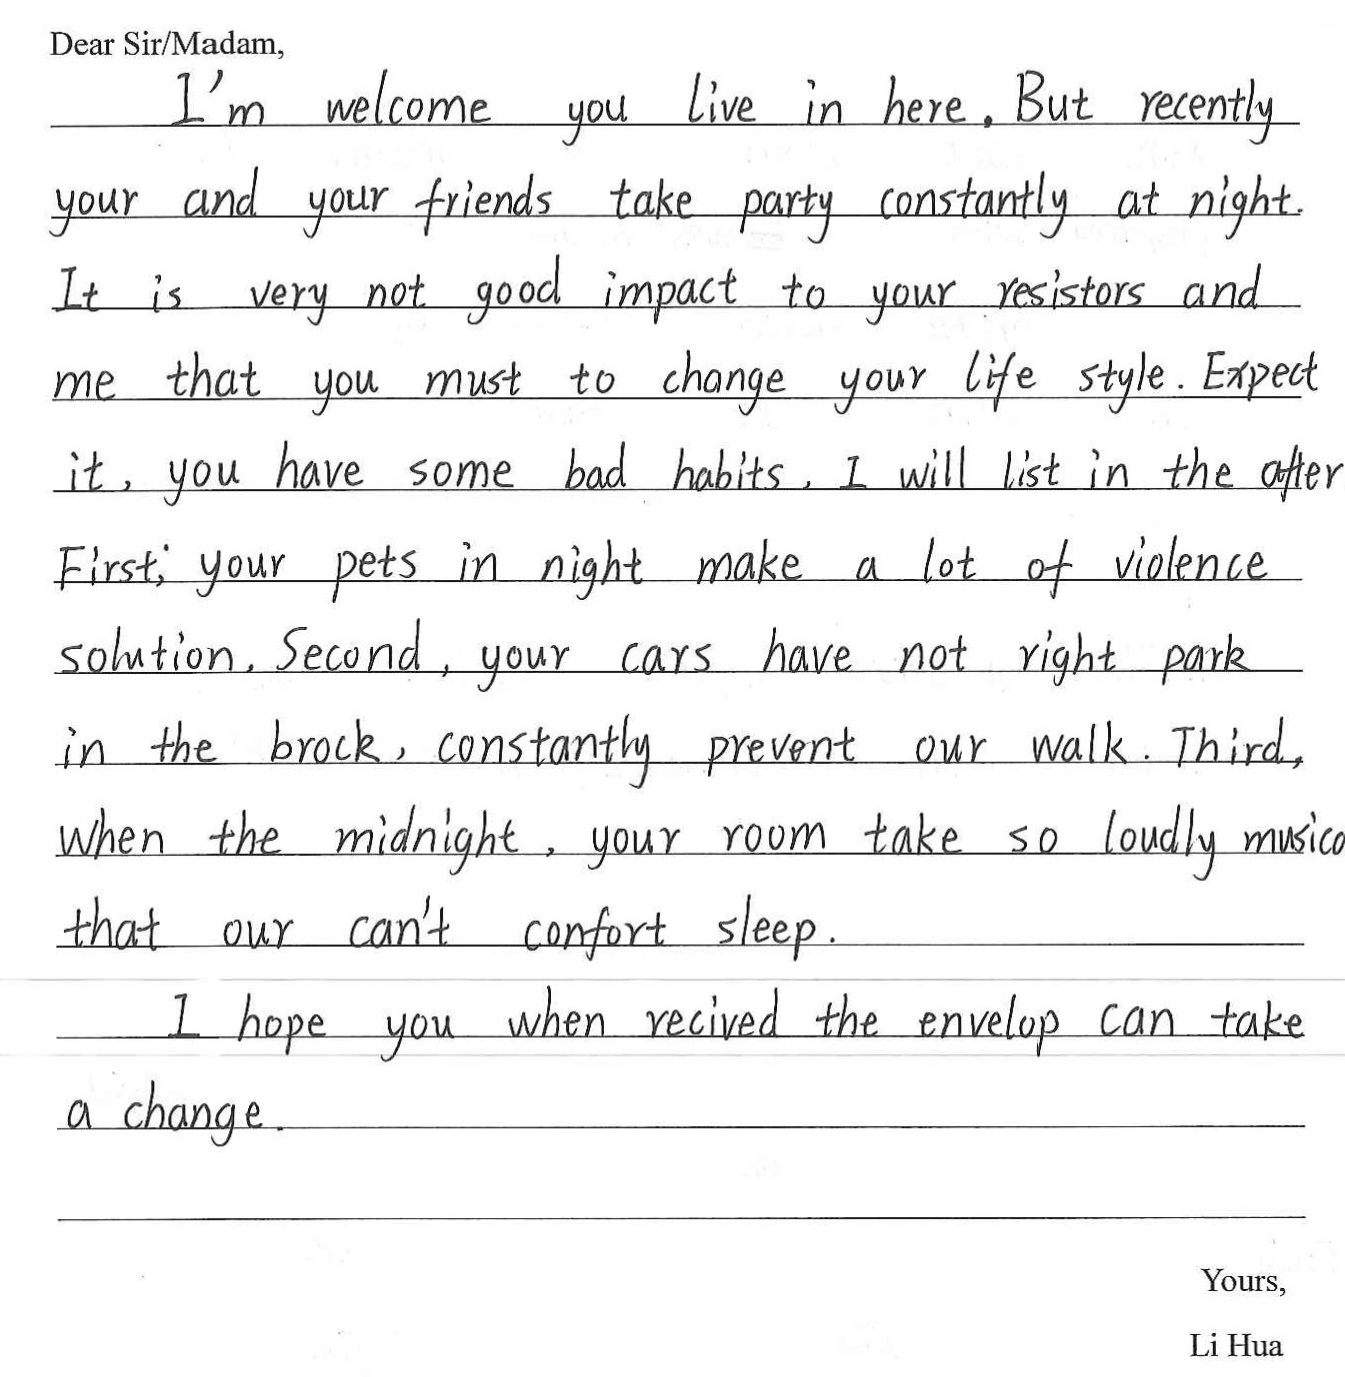 Dear Sir/Madam,
I'm welcome you live in here. But recently
your and your friends take party constantly at night.
It is very not good impact to your resistors and
me that you must to change your life style. Expect
it, you have some bad habits, I will list in the after
First, your pets in night make a lot of violence
solution. Second, your cars have not right park
in the brock, constantly prevent our walk. Third,
when the midnight, your room take so loudly musico
that our can't confort sleep.
I hope you when recived the envelop can take
a change.
Yours,
Li Hua